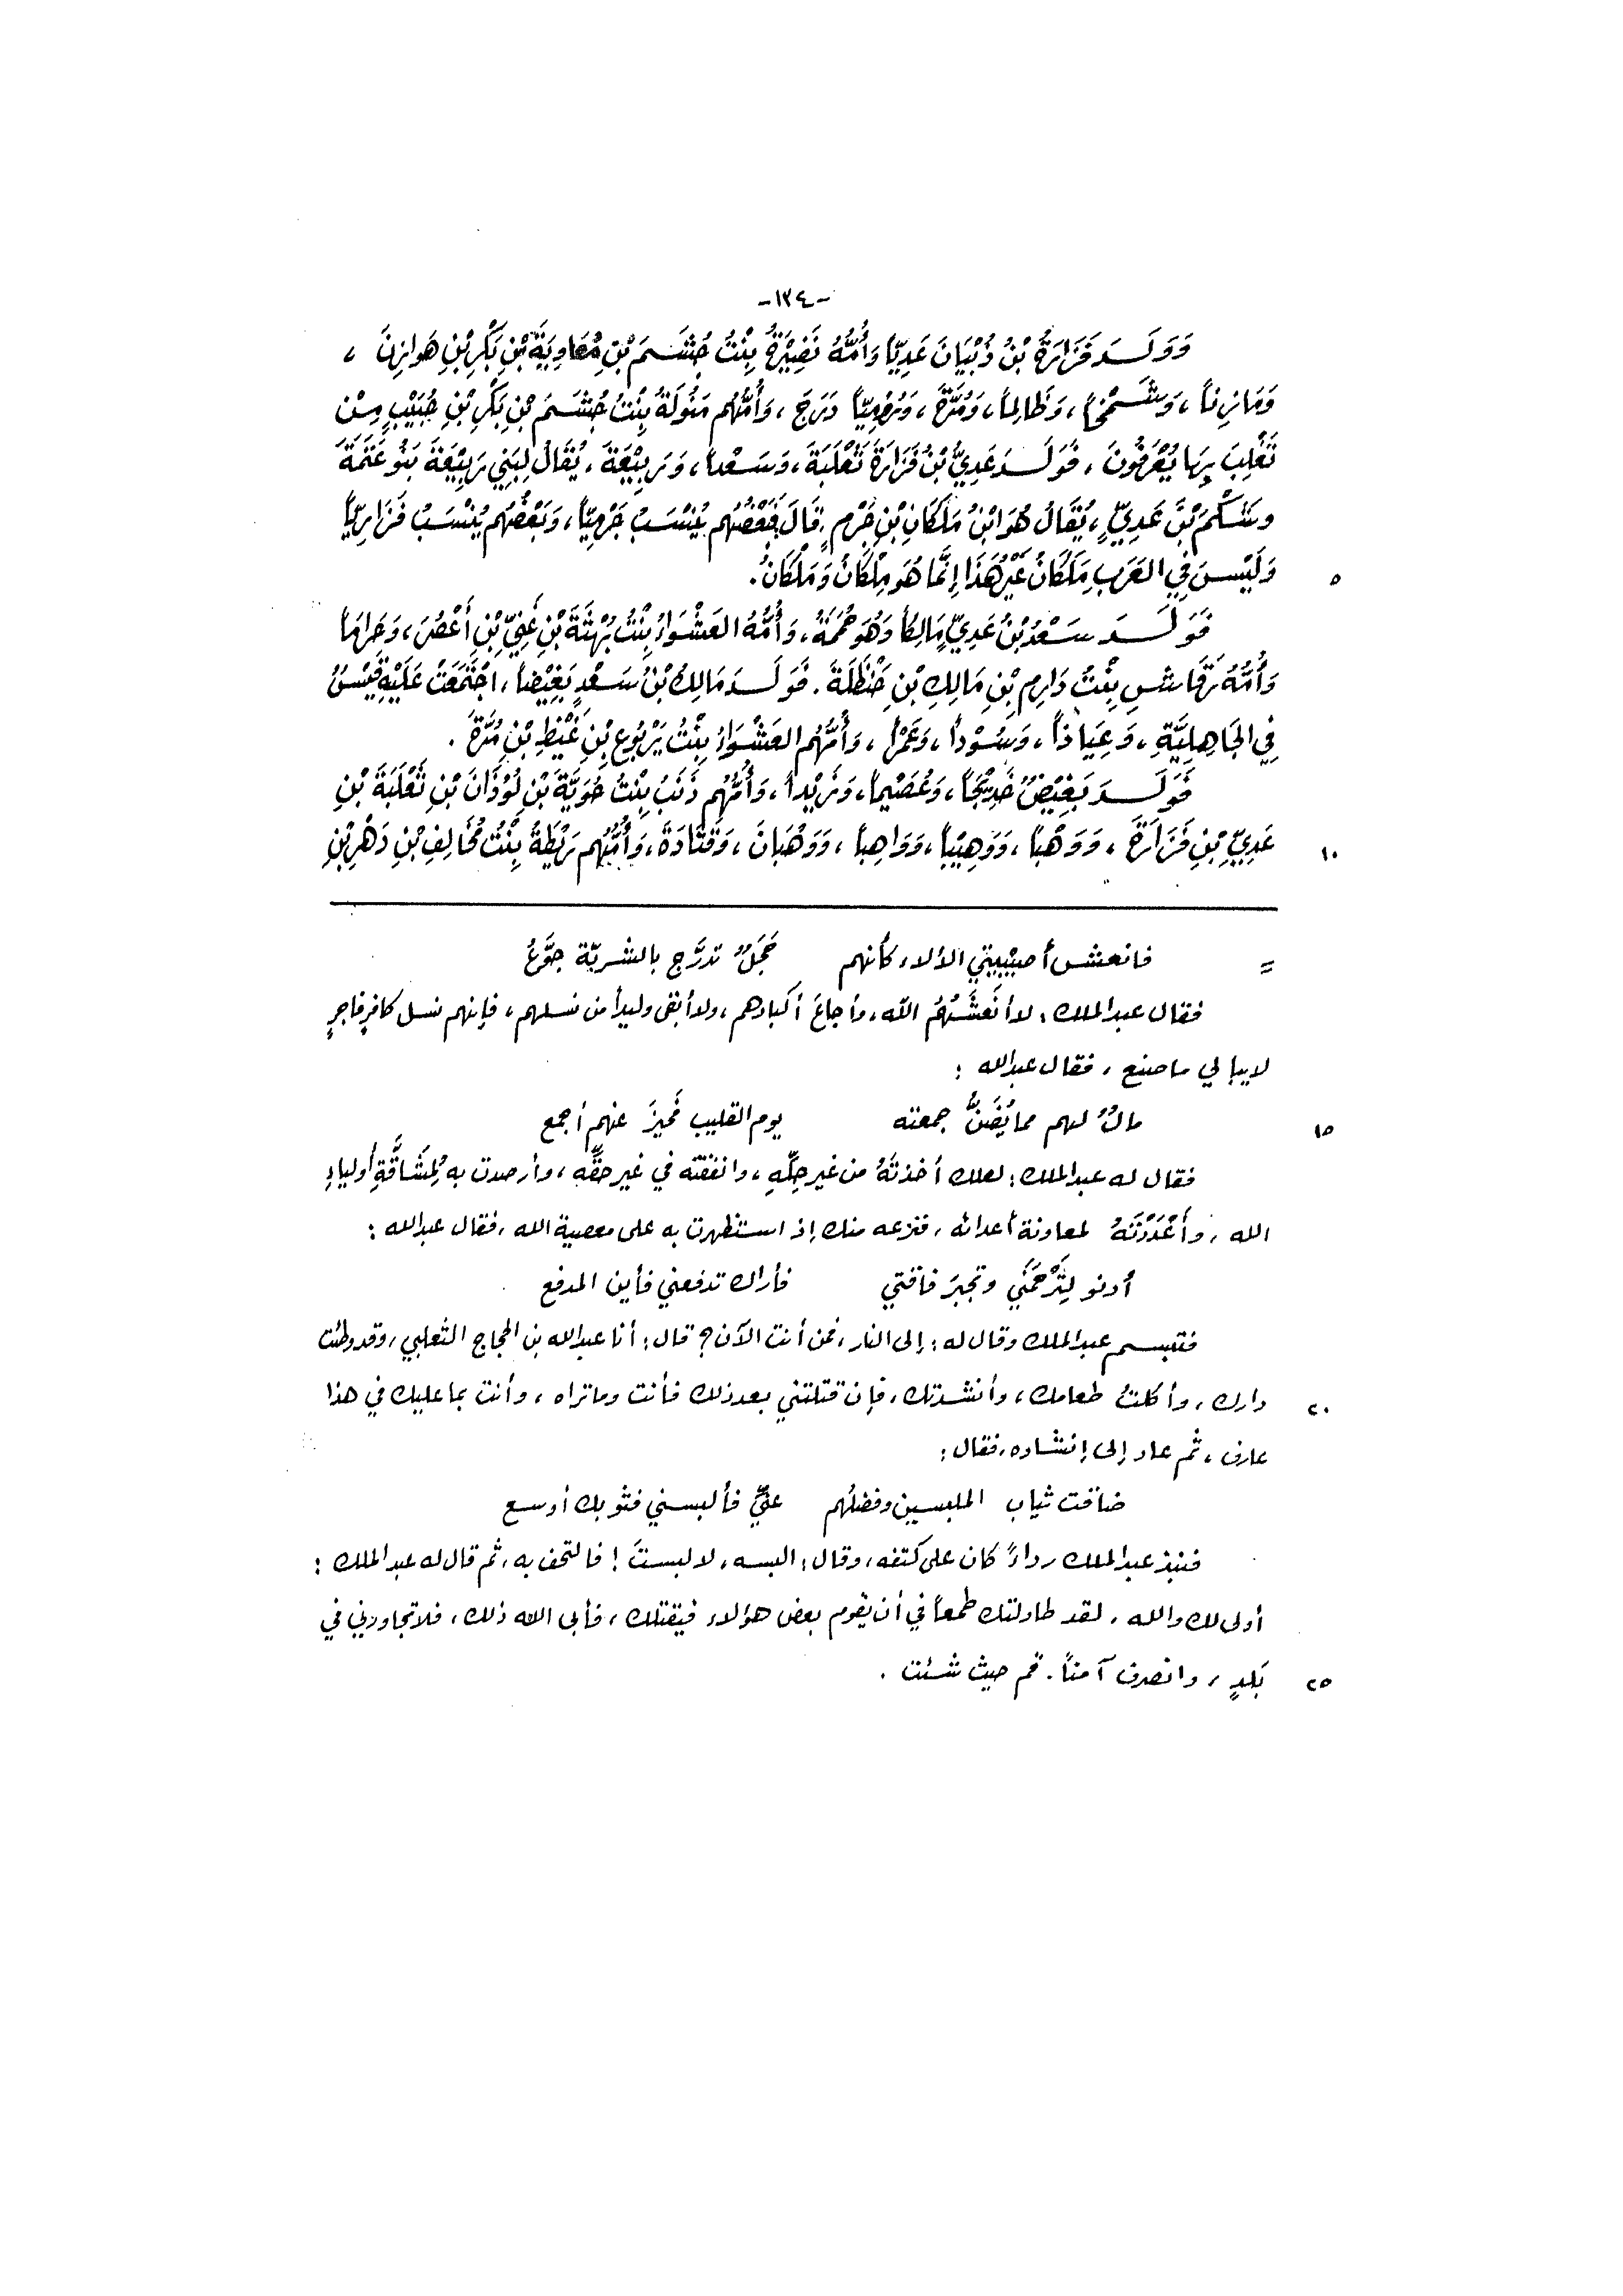 -١٣٤-
وَوَلَدَ فَزَارَةُ بْنُ ذُبْيَانَ عَدِيّاً وَأُمُّهُ نَضِيْرَةُ بِنْتُ جُشَمَ بْنِ مُعَاوِيَةَ بْنِ بَكْرِ بْنِ هَوازِنَ ،
وَمَازِناً ، وَشَمْخاً ، وَظَالِماً ، وَمُرَّةَ ، وَرُومِيّاً دَرَجَ ، وَأُمُّهُم مَنُولَةُ بِنْتُ جُشَمَ بْنِ بَكْرِ بْنِ حُبَيْبٍ مِنْ
تَغْلِبَ بِهَا يُعْرَفُونَ ، فَوَلَدَ عَدِيُّ بْنُ فَزَارَةَ ثَعْلَبَةَ ، وَسَعْداً ، وَرَبِيْعَةَ ، يُقَالُ لِبَنِي رَبِيْعَةَ بَنُو عَثَمَةَ
وَشَكْمَ بْنَ عَدِيٍّ ، يُقَالُ هُوَ ابْنُ مَلَكَانِ بْنِ جَرْمٍ ، قَالَ فَبَعْضُهُم يُنْسَبُ جَرْمِيّاً ، وَبَعْضُهُم يُنْسَبُ فَزَارِيّاً
٥ وَلَيْسَ فِي العَرَبِ مَلَكَانُ غَيْرُ هَذَا إِنَّمَا هُوَ مِلْكَانُ وَمَلْكَانُ.
فَوَلَدَ سَعْدُ بْنُ عَدِيٍّ مَالِكاً وَهُوَ حُمَمَةُ ، وَأُمُّهُ العَشْوَاءُ بِنْتُ بُهْثَةَ بْنِ غَنِيِّ بْنِ أَعْصُرَ ، وَحَرَاماً
وَأُمُّهُ رَقَاشِ بِنْتُ دَارِمِ بْنِ مَالِكِ بْنِ حَنْظَلَةَ . فَوَلَدَ مَالِكُ بْنُ سَعْدٍ بَغِيْضاً ، اجْتَمَعَتْ عَلَيْهِ قَيْسُ
فِي الجَاهِلِيَّةِ ، وَعِيَاذاً ، وَسُوْداً ، وَعَمْراً ، وَأُمُّهُم العَشْوَاءُ بِنْتُ يَرْبُوعِ بْنِ غَيْظِ بْنِ مُرَّةَ .
فَوَلَدَ بَغِيْضُ خَدِيْجاً ، وَعُصَيْماً ، وَزَيْداً ، وَأُمُّهُم ذَنَبُ بِنْتُ جُوَيَّةَ بْنِ لُوْذَانَ بْنِ ثَعْلَبَةَ بْنِ
١٠ عَدِيِّ بْنِ فَزَارَةَ ، وَوَهْباً ، وَوَهِيْباً ، وَوَاهِباً ، وَوَهْبَانَ ، وَقَتَادَةَ ، وَأُمُّهُم رَيْطَةُ بِنْتُ مُخَالِفِ بْنِ دَهْرِ بْنِ
= فانعش أصيبيتي الألاء كأنهم حَجَلٌ تدرَّج بالشربّة جوَّعُ
فقال عبد الملك : لا أنعَشَهُمُ الله ، وأجاعَ أكبادهم ، ولا أبقى وليداً من نسلهم ، فإنهم نسل كافرٍ فاجرٍ
لايبالي ماصنع ، فقال عبدالله :
١٥ مالٌ لهم مما يُضَنُّ جمعته يوم القليب فحِيزَ عنهم أجمع
فقال له عبد الملك : لعلك أخذتَهُ من غير حِلِّهِ ، وانفقته في غير حقِّه ، وأرصدت به لِمشَاقَّةِ أولياءِ
الله ، وأعْدَدْتَهُ لمعاونة أعدائه ، فنزعه منك إذ استظهرت به على معصية الله ، فقال عبدالله :
أدنو لِتَرْحَمَنِي وتجبرَ فاقتي فأراك تدفعني فأين المدفع
فتبسم عبد الملك وقال له : إلى النار ، فمن أنت الآن ؟ قال : أنا عبدالله بن الحجاج الثعلبي ، وقد وطئت
٢٠ دارك ، وأكلتُ طعامك ، وأنشدتك ، فإن قتلتني بعد ذلك فأنت وماتراه ، وأنت بما عليك في هذا
عارف ، ثم عاد إلى إنشاده ، فقال :
ضاقت ثياب الملبسين وفضلُهم عنّي فألبسني فثوبك أوسع
فنبذ عبد الملك رداءً كان على كتفه ، وقال : البسه ، لا لبستَ ! فالتحف به ، ثم قال له عبد الملك :
أولى لك والله ، لقد طاولتك طمعاً في أن يقوم بعض هؤلاء فيقتلك ، فأبى الله ذلك ، فلا تجاورني في
٢٥ بَلدٍ ، وانصرف آمناً . قم حيث شئت .